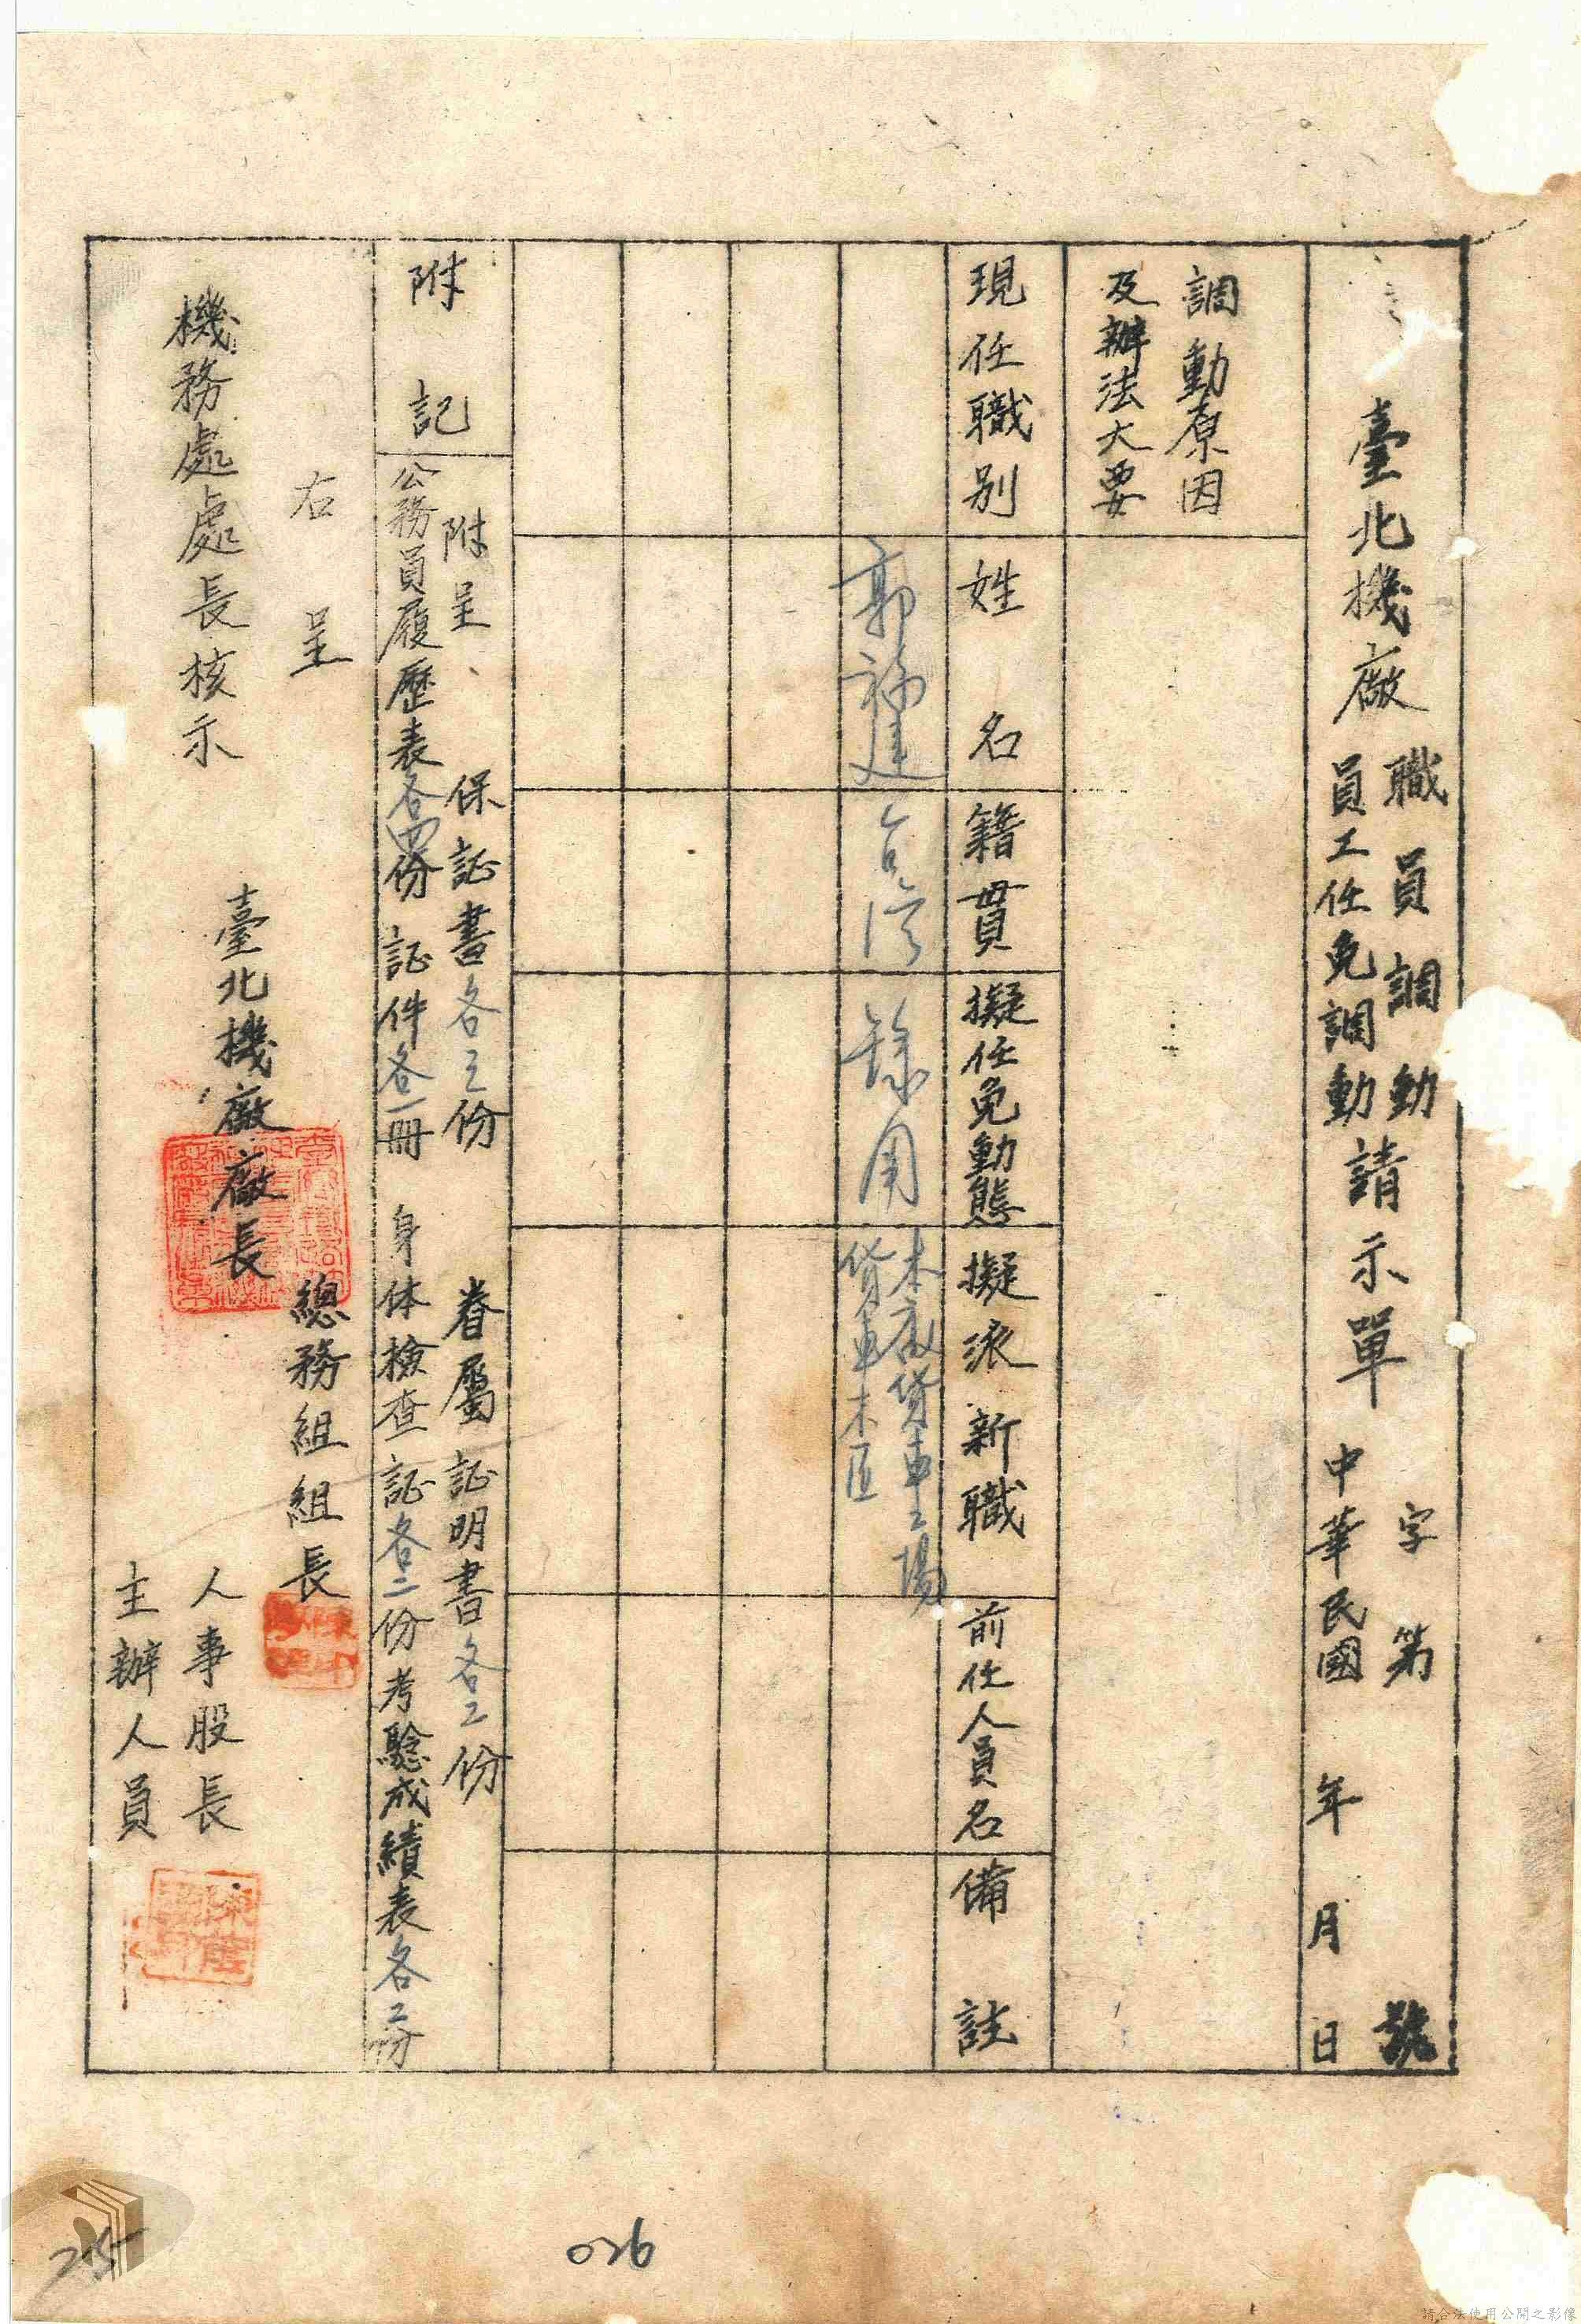 臺北機廠
職員調動
員工任免調動
請示單
字第 號
中華民國 年 月 日
調動原因
及辦法大要
現任職別
姓名
籍貫
擬任免動態
擬派新職
前任人員名
備註
郭福建
台灣
錄用
本廠貨車工場
貨車木匠
附記
附呈、保証書各三份 眷屬証明書各二份
公務員履歷表各四份 証件各一冊 身体檢查証各二份 考驗成績表各二份
右呈
機務處處長核示
臺北機廠廠長
總務組組長
人事股長
主辦人員
026
25
請合法使用公開之影像